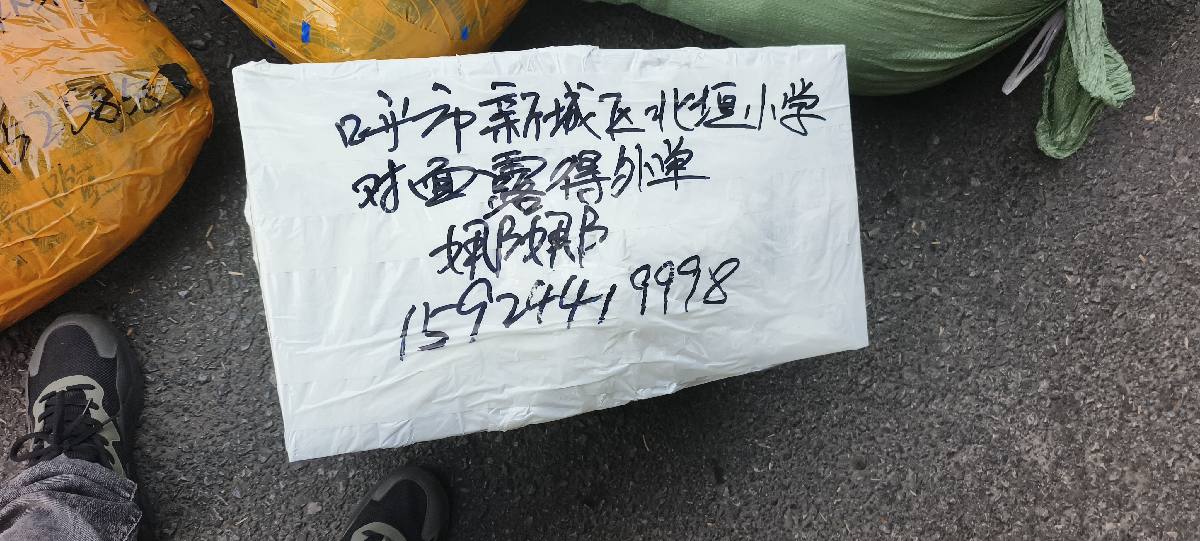 呼市新城区北垣小学
对面露得外单
娜娜
15924419998